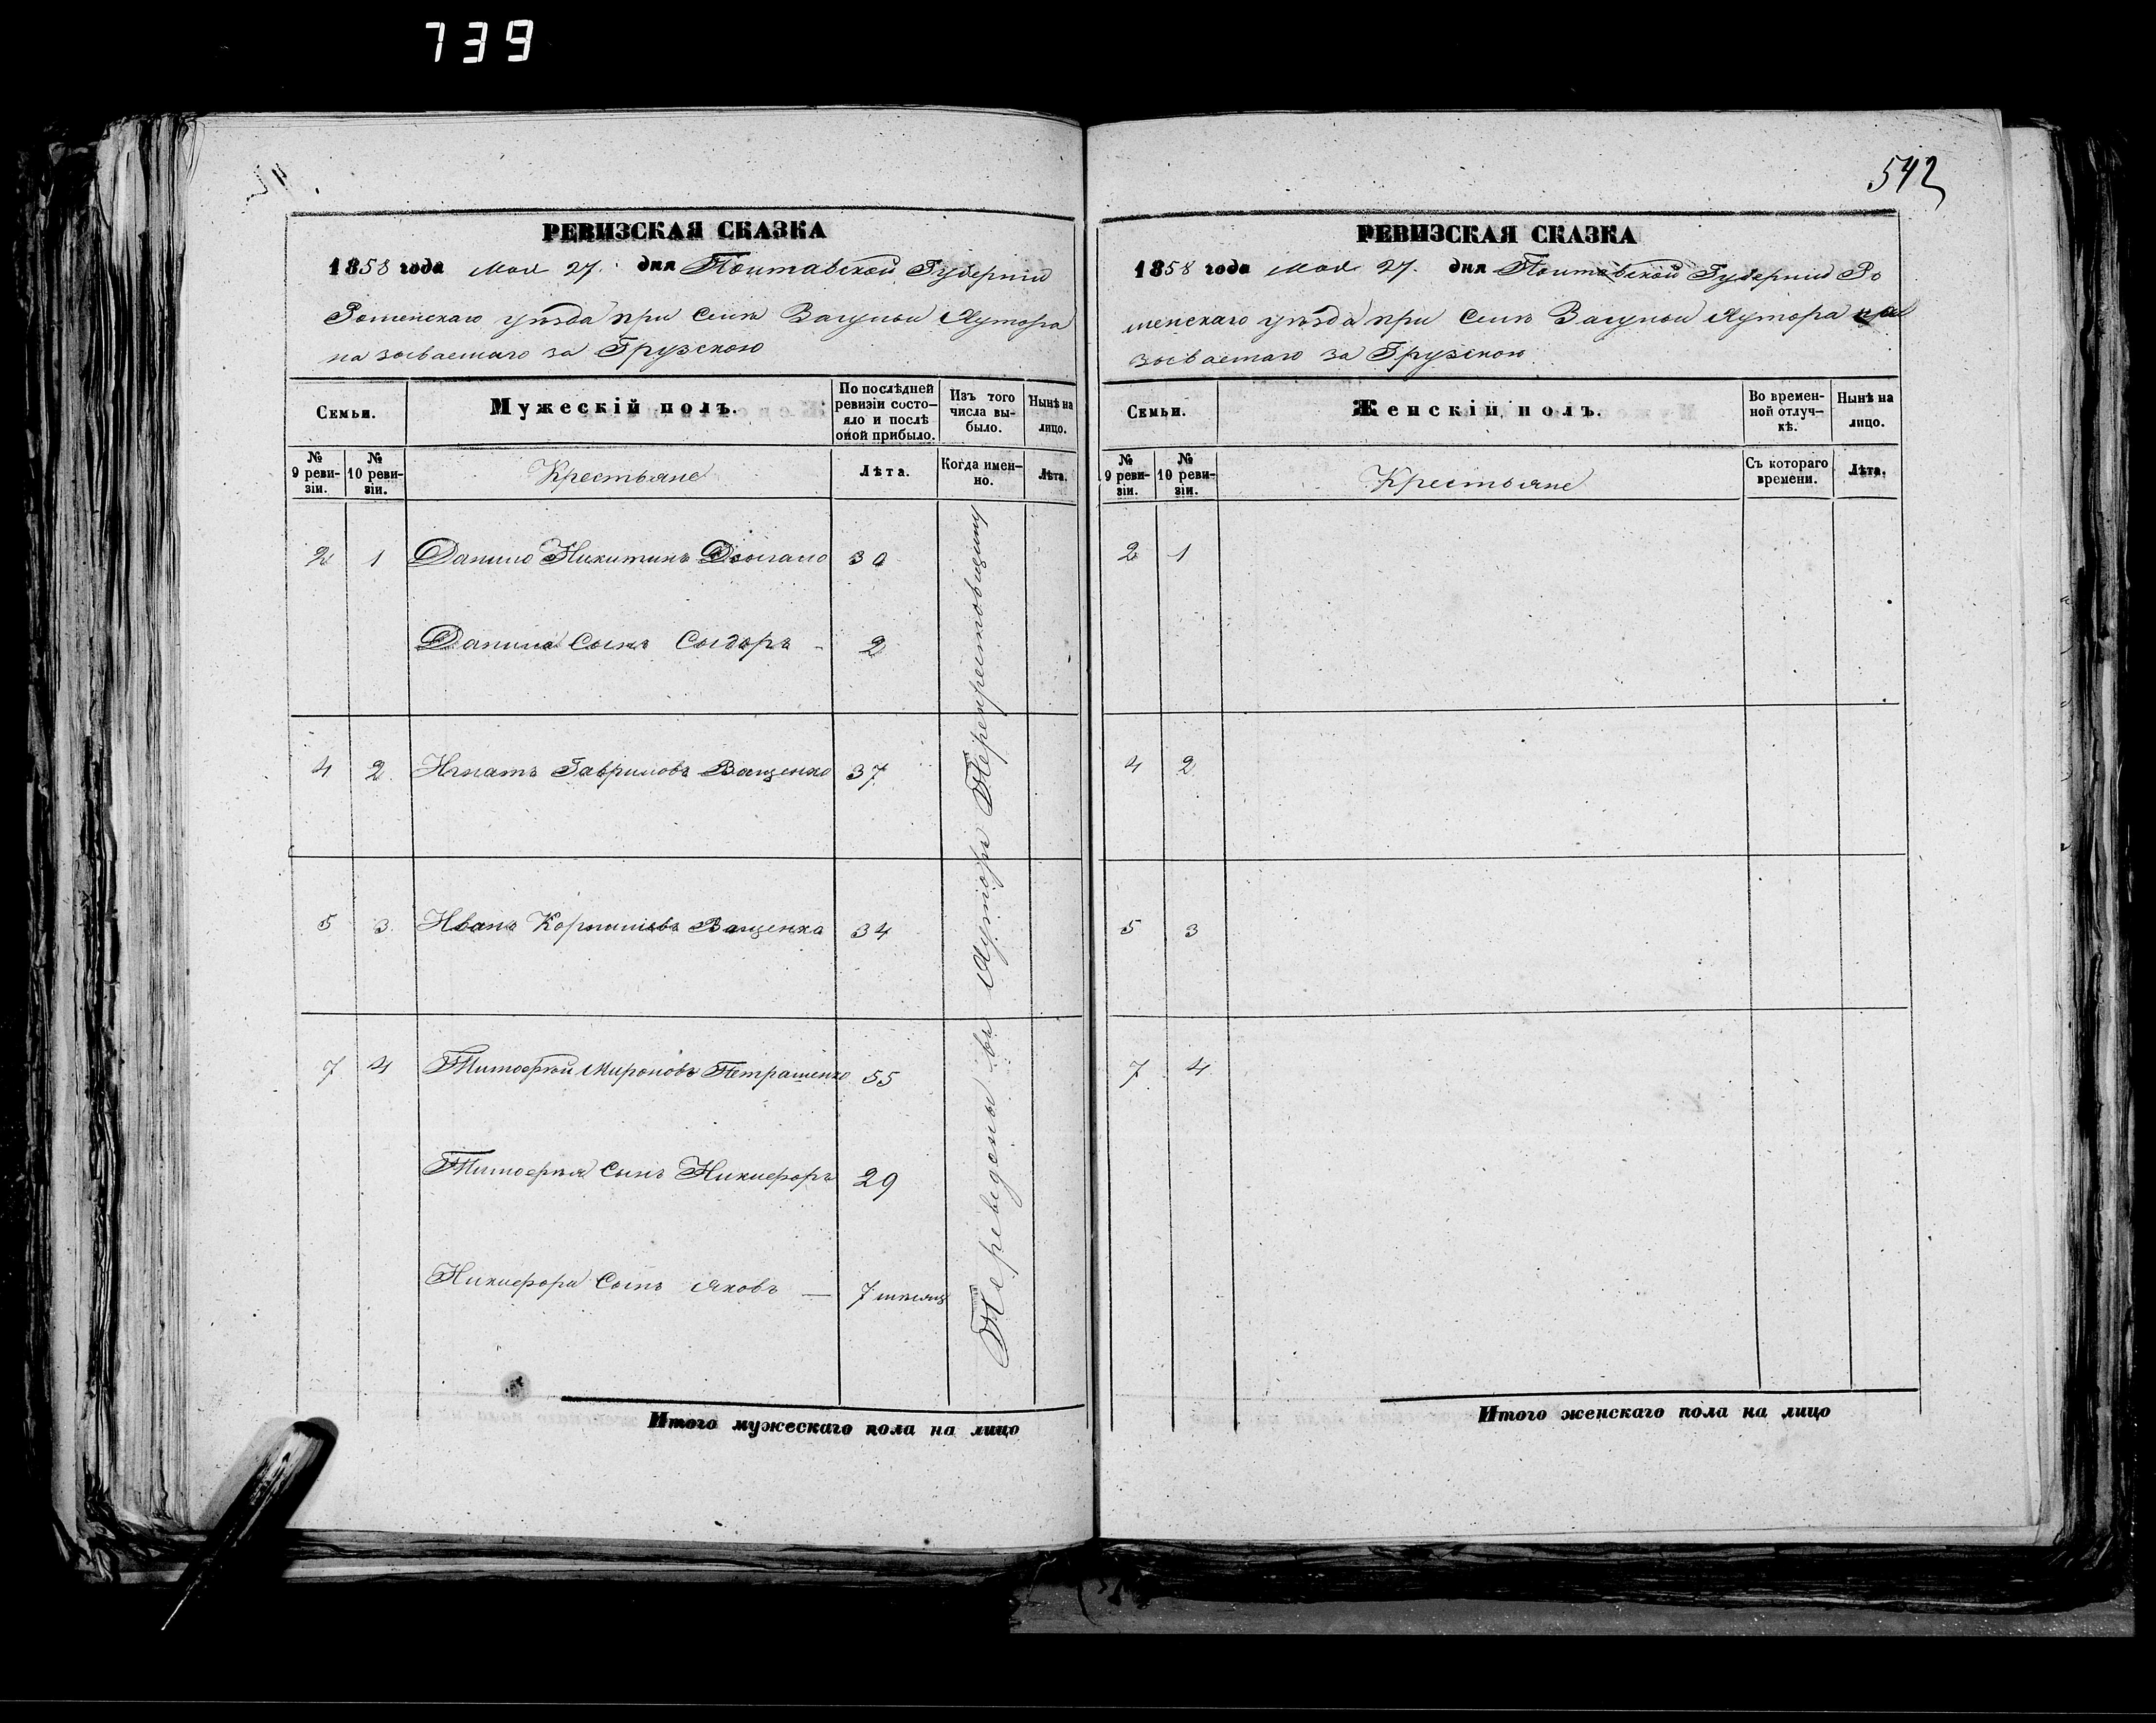 739
542
РЕВИЗСКАЯ СКАЗКА
1858 года Мая 27. дня Полтавской Губерніи
Роменскаго уѣзда при селѣ Хутора
называемаго за Грузскою
Семьи.
Мужескій полъ.
По послѣдней ревизіи состояло и послѣ оной прибыло.
Изъ того числа выбыло.
Нынѣ на лицо.
№ 9 ревизіи.
№ 10 ревизіи.
Крестьяне
Лѣта.
Когда именно.
Лѣта.
2 1 Данило Никитинъ 30
Данила Сынъ Сыдоръ - 2
4 2. Игнатъ Гавриловъ Ващенко 37
5 3. Иванъ Ващенко 34
7 4 Тимофѣй Мироновъ Петрашенко 55
Тимофѣя Сынъ Никифоръ 29
Никифора Сынъ Яковъ — 7 мѣсяц
Переведены въ Хуторъ Перекрестовщину
Итого мужескаго пола на лицо
РЕВИЗСКАЯ СКАЗКА
1858 года Мая 27. дня Полтавской Губерніи Ро
менскаго уѣзда при селѣ Хутора на
зываемаго за Грузскою
Семьи.
Женскій полъ.
Во временной отлучкѣ.
Нынѣ на лицо.
№ 9 ревизіи.
№ 10 ревизіи.
Крестьяне
Съ котораго времени.
Лѣта.
2 1
4 2
5 3
7 4
Итого женскаго пола на лицо